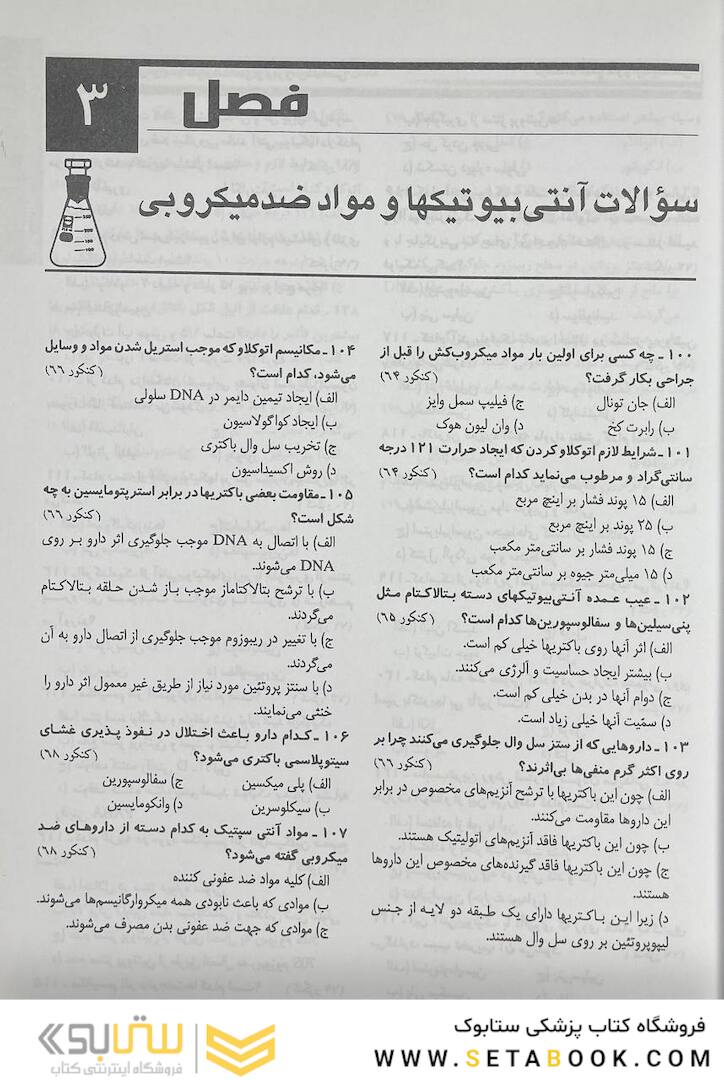 فصل ۳
سؤالات آنتی‌بیوتیکها و مواد ضدمیکروبی
۱۰۰ ـ چه کسی برای اولین بار مواد میکروب‌کش را قبل از
جراحی بکار گرفت؟ (کنکور ۶۴)
الف) جان تونال ج) فیلیپ سمل وایز
ب) رابرت کخ د) وان لیون هوک
۱۰۱ ـ شرایط لازم اتوکلاو کردن که ایجاد حرارت ۱۲۱ درجه
سانتی‌گراد و مرطوب می‌نماید کدام است؟ (کنکور ۶۴)
الف) ۱۵ پوند فشار بر اینچ مربع
ب) ۲۵ پوند بر اینچ مربع
ج) ۱۵ پوند فشار بر سانتی‌متر مکعب
د) ۱۵ میلی‌متر جیوه بر سانتی‌متر مکعب
۱۰۲ ـ عیب عمده آنتی‌بیوتیکهای دسته بتالاکتام مثل
پنی‌سیلین‌ها و سفالوسپورین‌ها کدام است؟ (کنکور ۶۵)
الف) اثر آنها روی باکتریها خیلی کم است.
ب) بیشتر ایجاد حساسیت و آلرژی می‌کنند.
ج) دوام آنها در بدن خیلی کم است.
د) سمّیت آنها خیلی زیاد است.
۱۰۳ ـ داروهایی که از ستز سل وال جلوگیری می‌کنند چرا بر
روی اکثر گرم منفی‌ها بی‌اثرند؟ (کنکور ۶۶)
الف) چون این باکتریها با ترشح آنزیم‌های مخصوص در برابر
این داروها مقاومت می‌کنند.
ب) چون این باکتریها فاقد آنزیم‌های اتولیتیک هستند.
ج) چون این باکتریها فاقد گیرنده‌های مخصوص این داروها
هستند.
د) زیرا این باکتریها دارای یک طبقه دو لایه از جنس
لیپوپروتئین بر روی سل وال هستند.
۱۰۴ ـ مکانیسم اتوکلاو که موجب استریل شدن مواد و وسایل
می‌شود، کدام است؟ (کنکور ۶۶)
الف) ایجاد تیمین دایمر در DNA سلولی
ب) ایجاد کواگولاسیون
ج) تخریب سل وال باکتری
د) روش اکسیداسیون
۱۰۵ ـ مقاومت بعضی باکتریها در برابر استرپتومایسین به چه
شکل است؟ (کنکور ۶۶)
الف) با اتصال به DNA موجب جلوگیری اثر دارو بر روی
DNA می‌شوند.
ب) با ترشح بتالاکتاماز موجب باز شدن حلقه بتالاکتام
می‌گردند.
ج) با تغییر در ریبوزوم موجب جلوگیری از اتصال دارو به آن
می‌گردند.
د) با سنتز پروتئین مورد نیاز از طریق غیر معمول اثر دارو را
خنثی می‌نمایند.
۱۰۶ ـ کدام دارو باعث اختلال در نفوذ پذیری غشای
سیتوپلاسمی باکتری می‌شود؟ (کنکور ۶۸)
الف) پلی میکسین ج) سفالوسپورین
ب) سیکلوسرین د) وانکومایسین
۱۰۷ ـ مواد آنتی سپتیک به کدام دسته از داروهای ضد
میکروبی گفته می‌شود؟ (کنکور ۶۸)
الف) کلیه مواد ضد عفونی کننده
ب) موادی که باعث نابودی همه میکروارگانیسم‌ها می‌شوند.
ج) موادی که جهت ضد عفونی بدن مصرف می‌شوند.
فروشگاه کتاب پزشکی ستابوک
WWW.SETABOOK.COM
ستابوک
فروشگاه اینترنتی کتاب